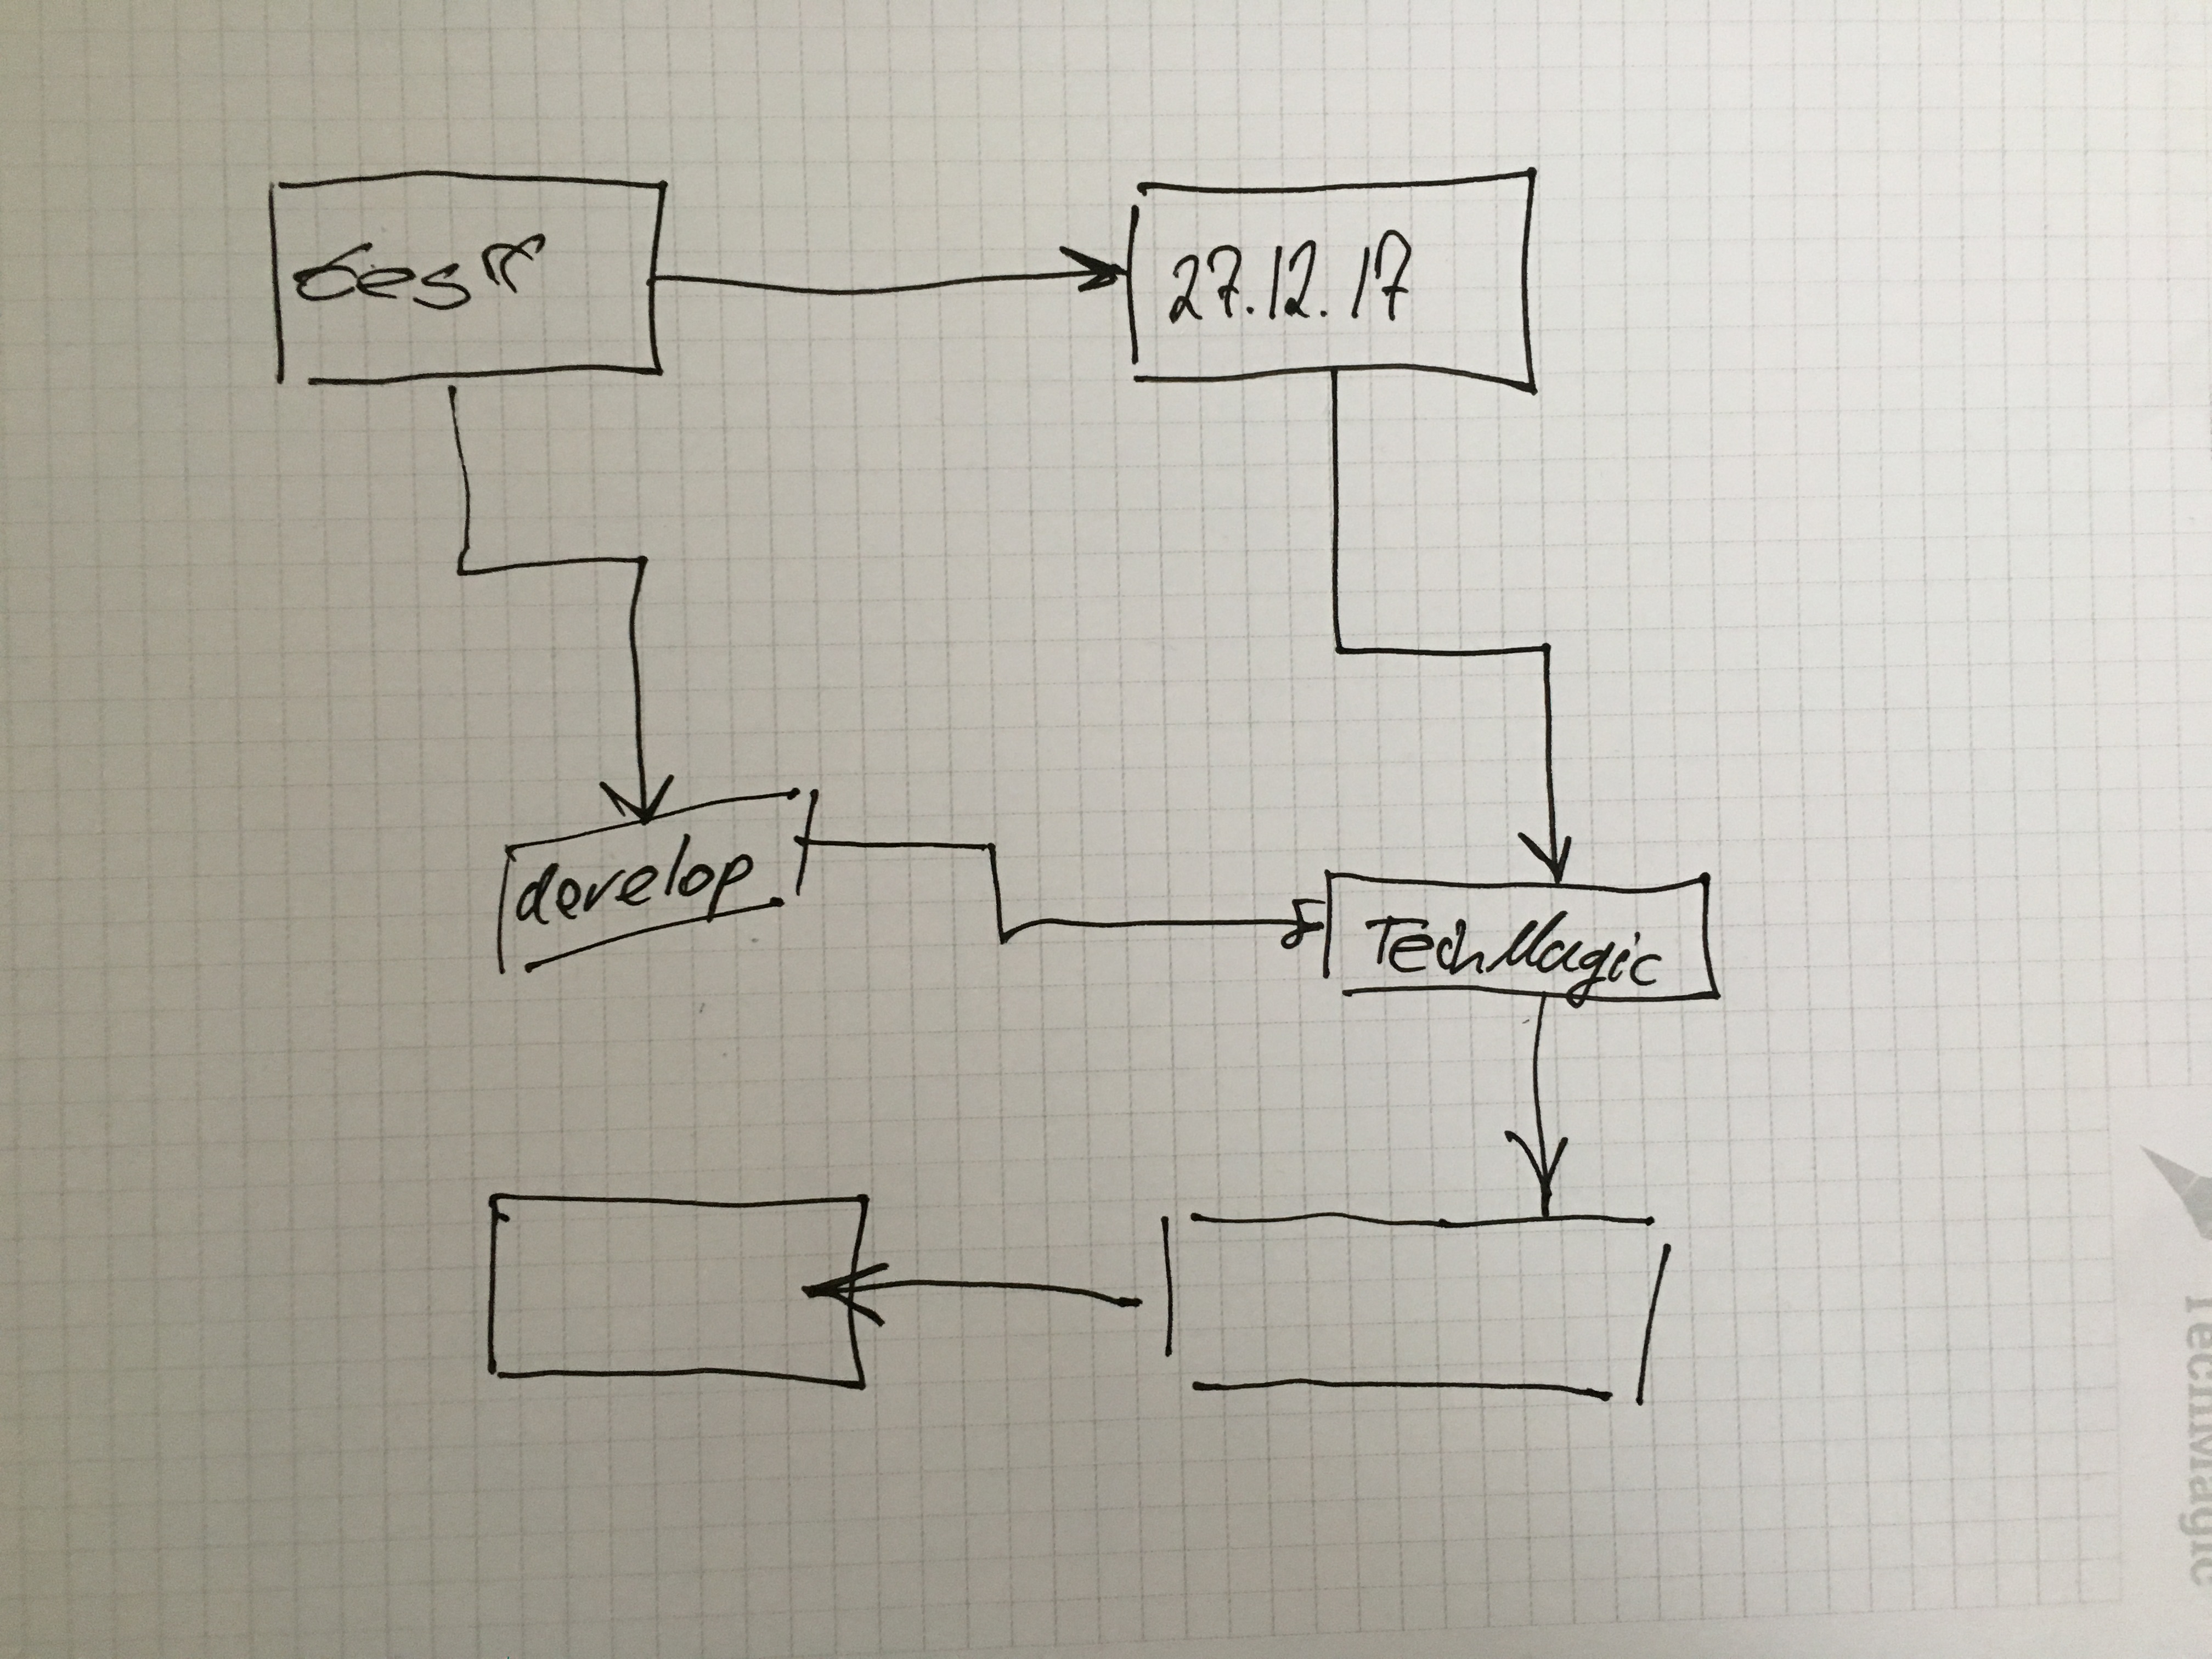 27.12.17
develop
TechMagic
TechMagic